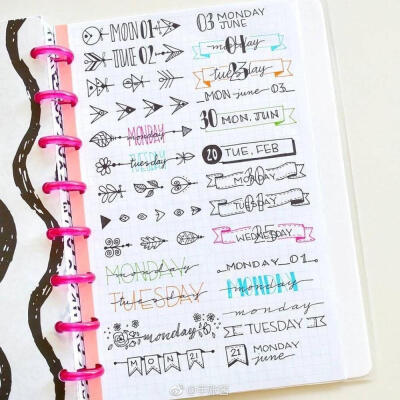 MON 01
TUE 02
MONDAY
TUESDAY
MONDAY
TUESDAY
tuesday
monday
MON 21
03 MONDAY
JUNE
04
monday
tuesday
MON june 03
30 MON, JUN
20 TUE, FEB
30
MONDAY
TUESDAY
05
WEDNESDAY
MONDAY_01
MONDAY
monday
monday
TUESDAY
21 MONDAY
june